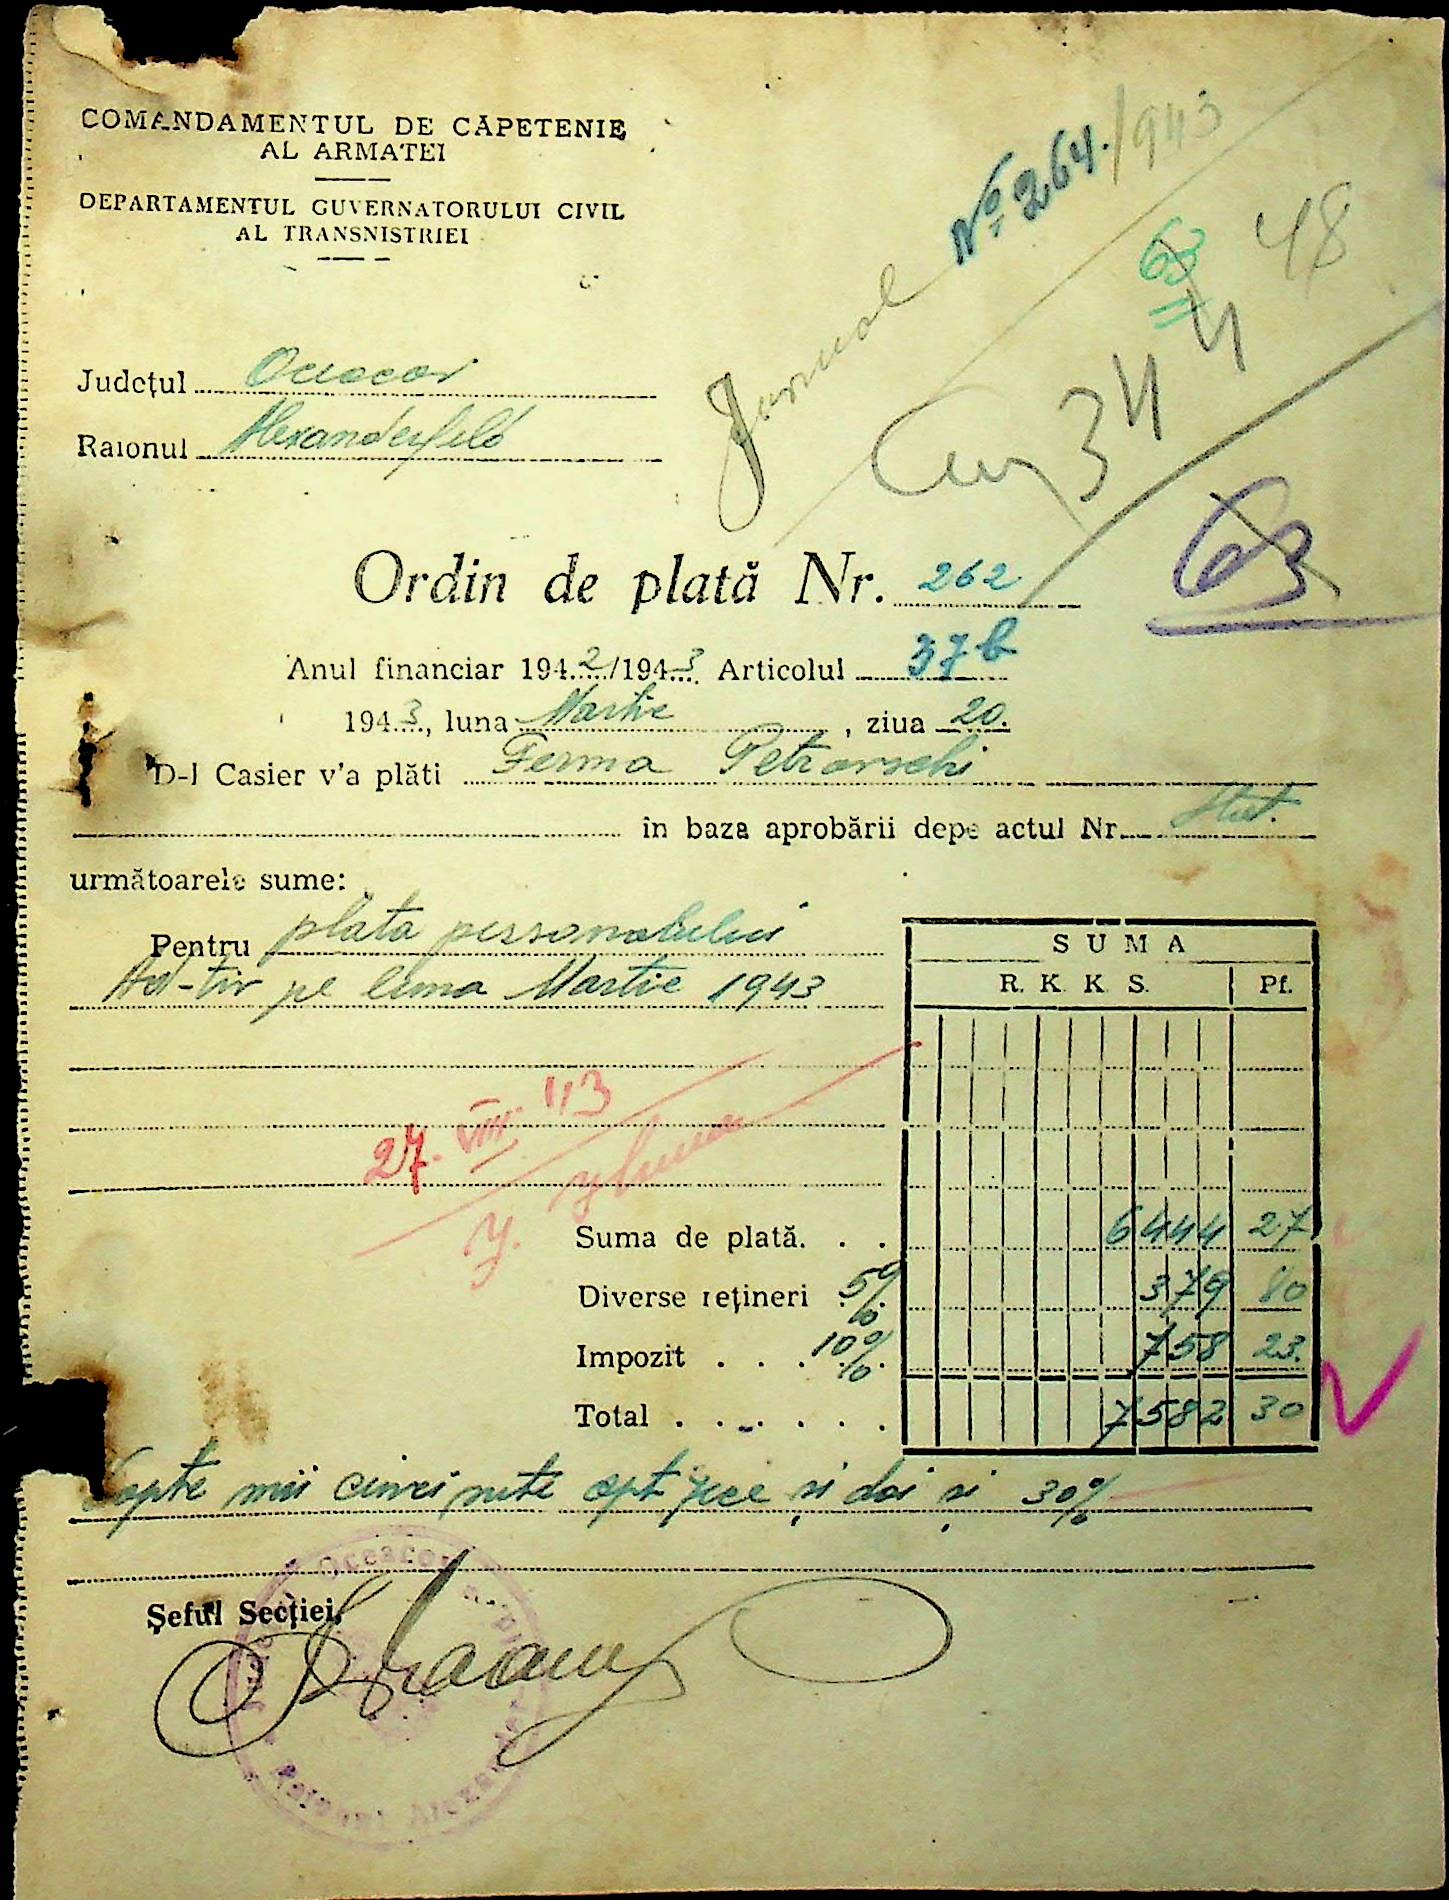 COMANDAMENTUL DE CAPETENIE
AL ARMATEI
DEPARTAMENTUL GUVERNATORULUI CIVIL
AL TRANSNISTRIEI
Jurnal No 264./943
63
48
344
63
Județul Oceacov
Raionul Alexanderfeld
Ordin de plată Nr. 262
Anul financiar 1942/1943 Articolul 37 b
1943, luna Martie, ziua 20.
D-l Casier v'a plăti Ferma Petrovschi
în baza aprobării depe actul Nr. Stat.
următoarele sume:
Pentru plata personalului
Ad-tiv pe luna Martie 1943
SUMA
R. K. K. S. Pf.
27. VIII. 43
Suma de plată. . . 6444 27
Diverse rețineri 5% 379 80
Impozit . . . 10% 758 23.
Total . . . . . . 7582 30
Șapte mii cinci sute opt zece și doi și 30%
Șeful Secției,